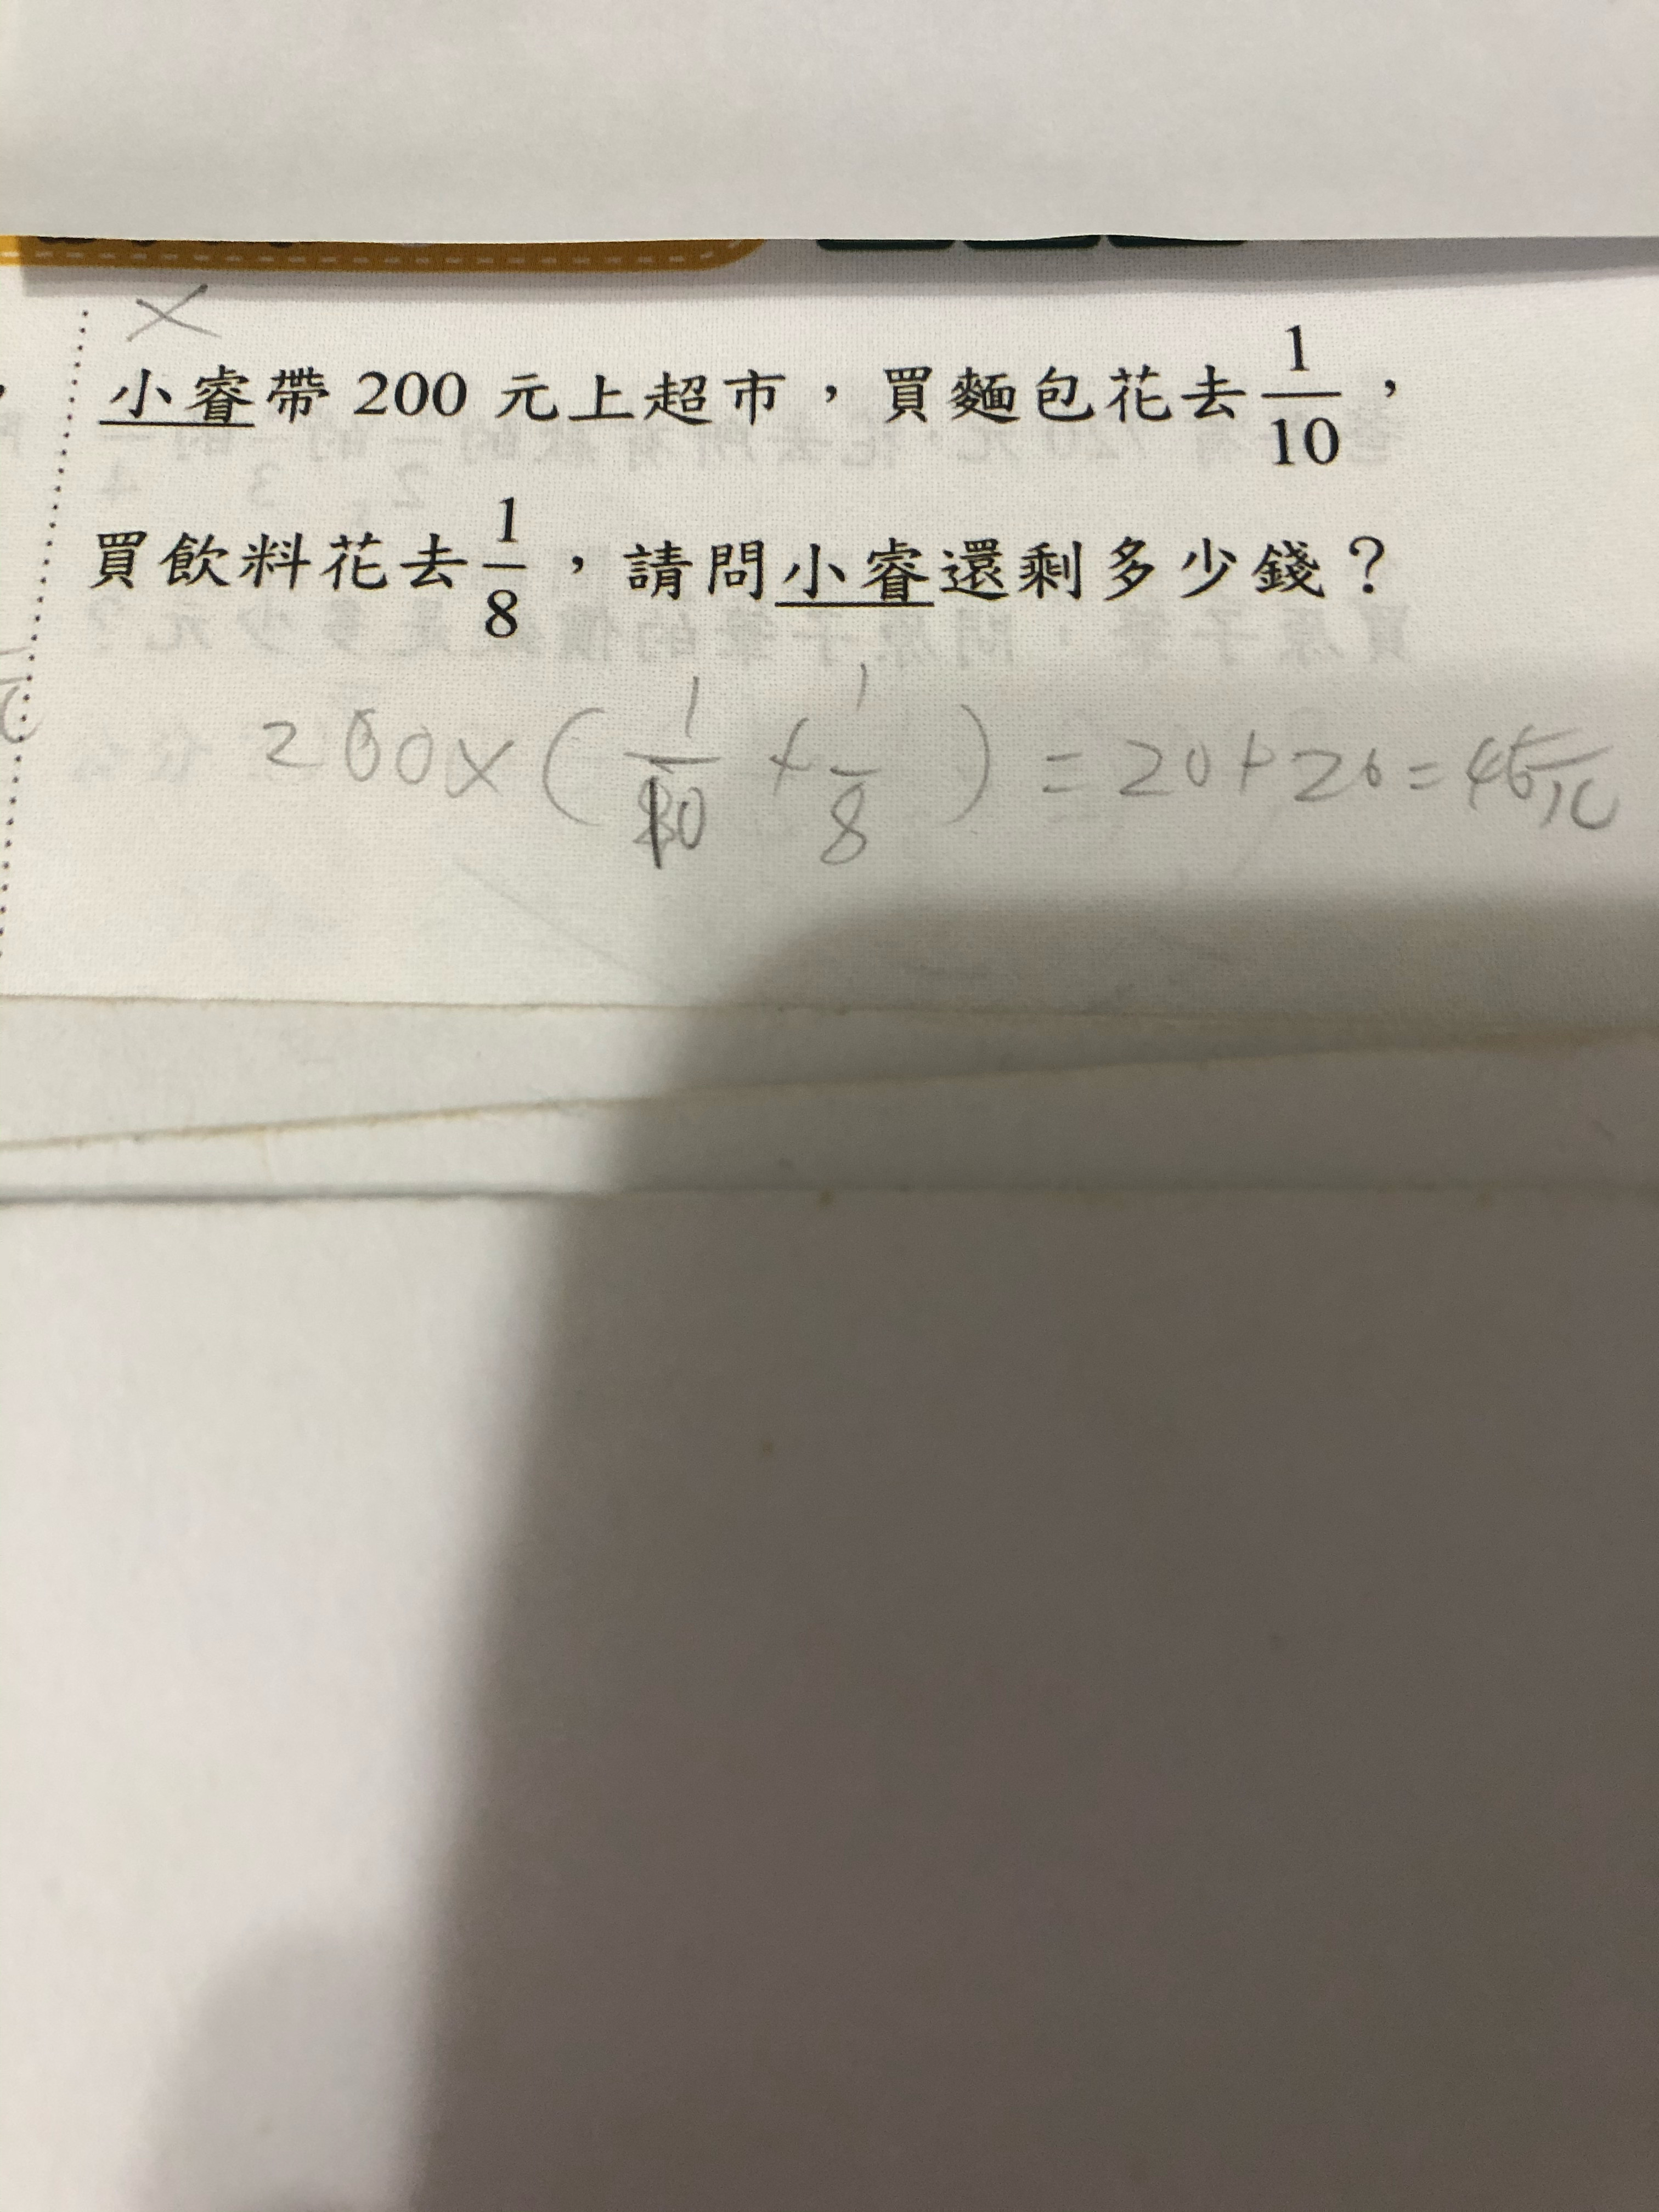 小睿帶 200 元上超市，買麵包花去 1/10，
買飲料花去 1/8，請問小睿還剩多少錢？
200×(1/10+1/8)=20+26=45元